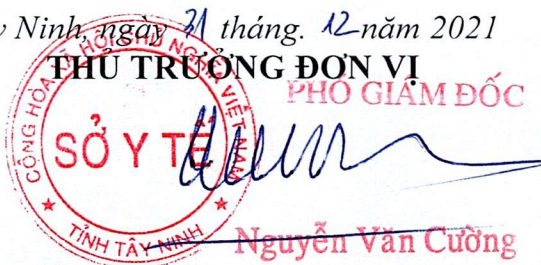 y Ninh, ngày 31 tháng. 12 năm 2021
THỦ TRƯỞNG ĐƠN VỊ
PHÓ GIÁM ĐỐC
CỘNG HÒA XÃ HỘI CHỦ NGHĨA VIỆT NAM
SỞ Y TẾ
TỈNH TÂY NINH
Nguyễn Văn Cường